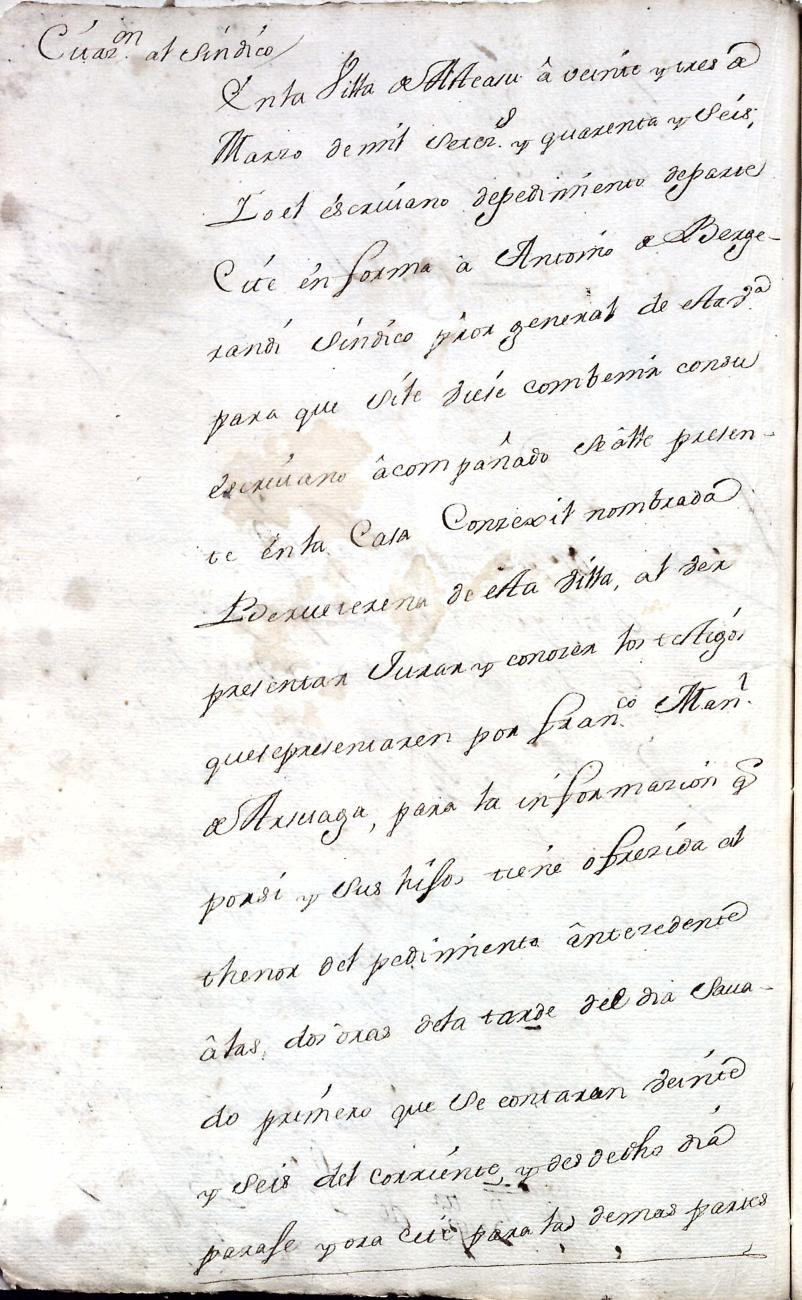 Citaz.on al Sindico
En la Villa de Atteasu â veinte y tres de
Marzo de mil setez.s y quarenta y seis,
Yo el escrivano depedimiento departe
Cite en forma â Antonio de Berge-
randi Sindico pror general de esta v.a
para que sile diese combenir consu
escrivano âcompañado se âlle presen-
te en la Casa Conzexil nombrada
de esta Villa, al ver
presentar Jurar y conozer los testigos
quesepresentaren por fran.co Man.l
de Arteaga, para la informazion q
porsi y sus hijos tiene ofrezida al
thenor del pedimiento ânterzedente
âlas, dos oras dela tarde del dia Sava-
do primero que se contaran veinte
y seis del corriente, y desdedho dia
parase y ora cite para las demas partes